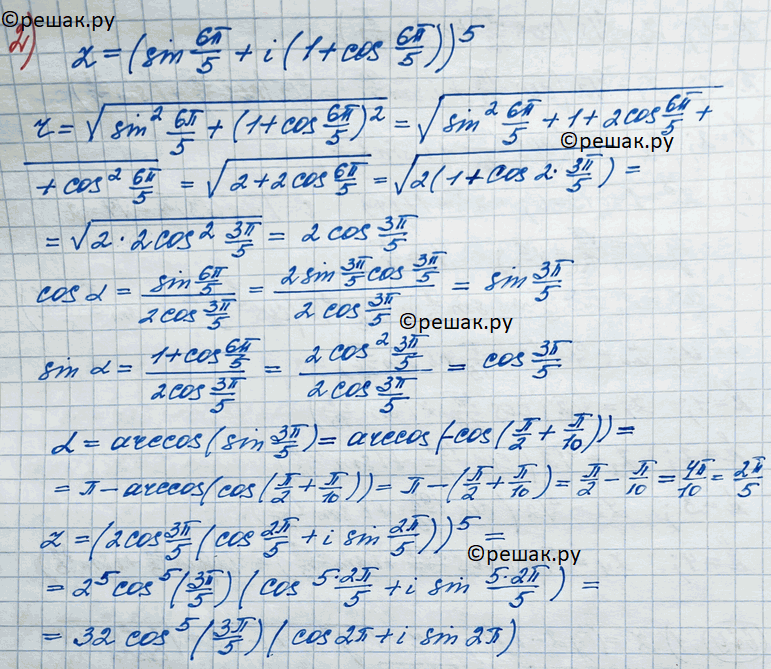 ©решак.ру
2) z = (sin 6π/5 + i(1 + cos 6π/5))^5
r = √(sin² 6π/5 + (1 + cos 6π/5)²) = √(sin² 6π/5 + 1 + 2cos 6π/5 +
©решак.ру
+ cos² 6π/5) = √(2 + 2cos 6π/5) = √(2(1 + cos 2·3π/5)) =
= √(2·2cos² 3π/5) = 2cos 3π/5
cos α = (sin 6π/5)/(2cos 3π/5) = (2sin 3π/5 cos 3π/5)/(2cos 3π/5) = sin 3π/5
©решак.ру
sin α = (1 + cos 6π/5)/(2cos 3π/5) = (2cos² 3π/5)/(2cos 3π/5) = cos 3π/5
α = arccos(sin 3π/5) = arccos(-cos(π/2 + π/10)) =
= π - arccos(cos(π/2 + π/10)) = π - (π/2 + π/10) = π/2 - π/10 = 4π/10 = 2π/5
z = (2cos 3π/5 (cos 2π/5 + i sin 2π/5))^5 =
©решак.ру
= 2^5 cos^5(3π/5)(cos 5·2π/5 + i sin 5·2π/5) =
= 32 cos^5(3π/5)(cos 2π + i sin 2π)